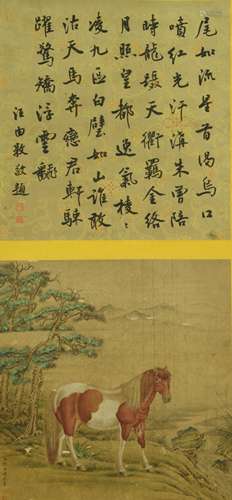 尾如流星首渴烏口
噴紅光汗溝朱曾陪
時龍躡天衢羈金絡
月照皇都逸氣稜〻
凌九區白璧如山誰敢
沽天馬奔戀君軒駷
躍驚矯浮雲翻
汪由敦敬題